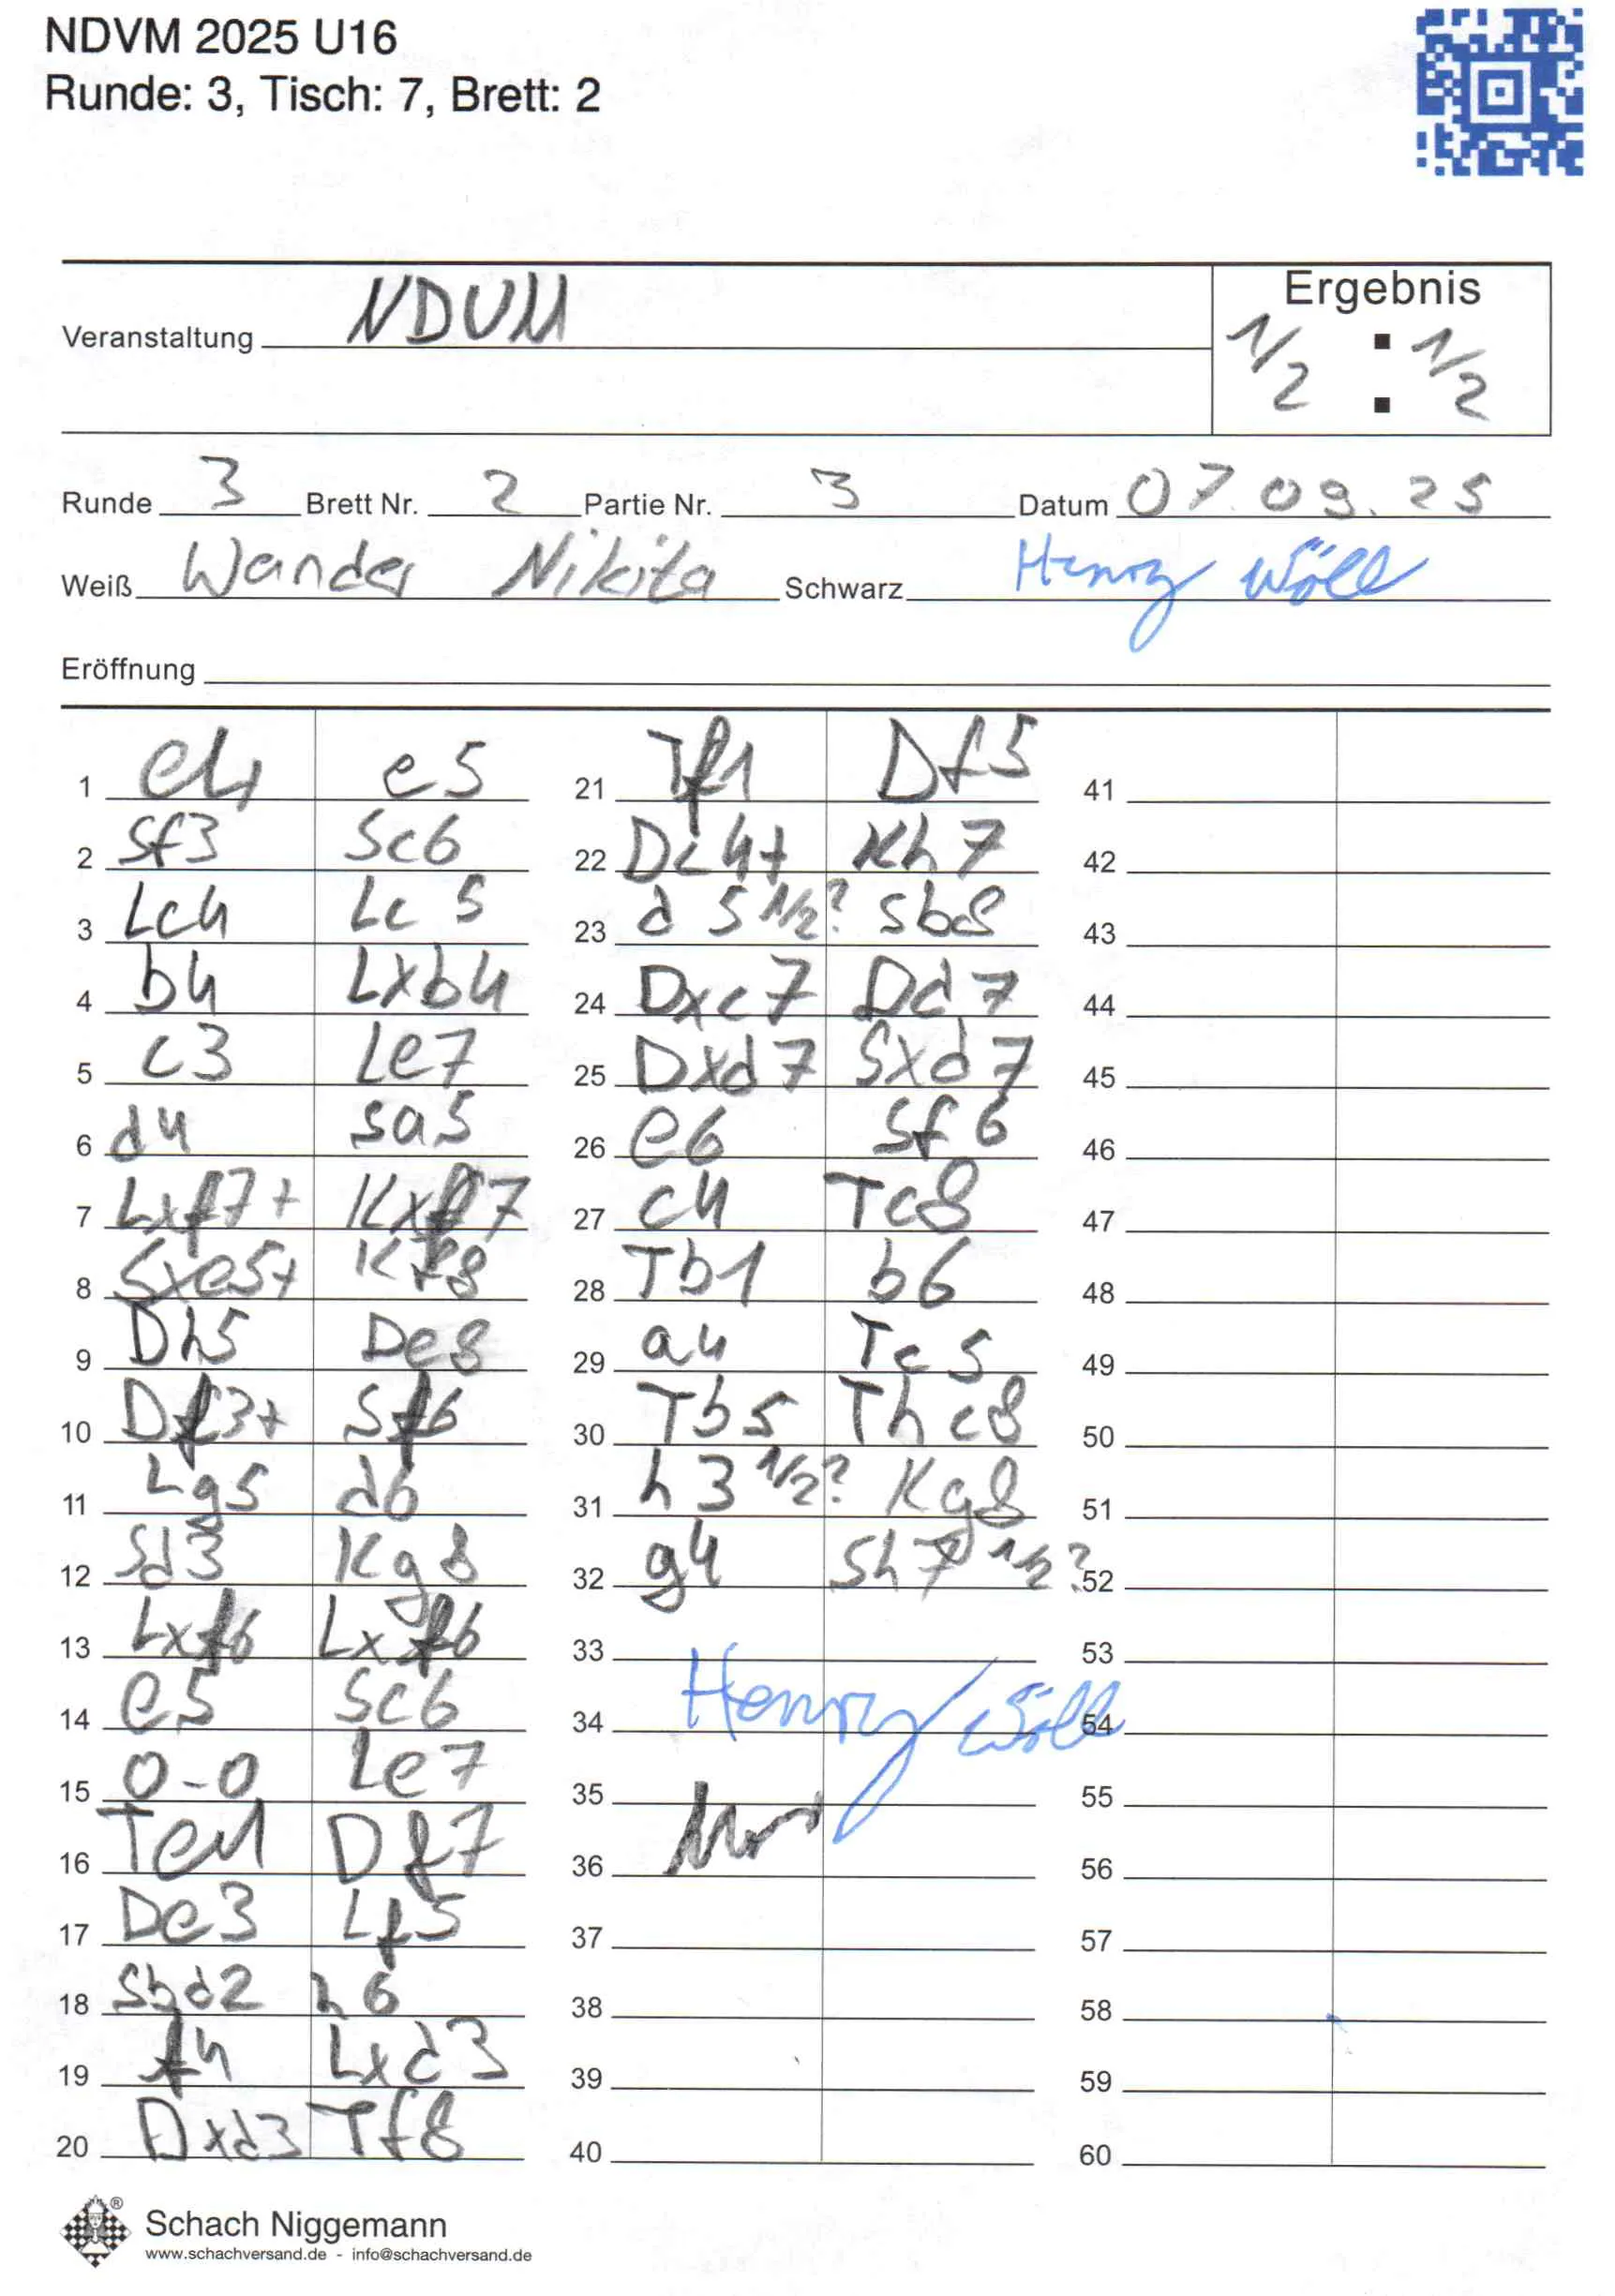 NDVM 2025 U16
Runde: 3, Tisch: 7, Brett: 2
Ergebnis
Veranstaltung NDVM
1/2 : 1/2
Runde 3 Brett Nr. 2 Partie Nr. 3 Datum 07.09.25
Weiß Wander Nikita Schwarz Henry Wöll
Eröffnung
1 e4 e5
2 Sf3 Sc6
3 Lc4 Lc5
4 b4 Lxb4
5 c3 Le7
6 d4 Sa5
7 Lxf7+ Kxf7
8 Sxe5+ Kf8
9 Dh5 De8
10 Df3+ Sf6
11 Lg5 d6
12 Sd3 Kg8
13 Lxf6 Lxf6
14 e5 Sc6
15 0-0 Le7
16 Te1 Df7
17 De3 Lf5
18 Sbd2 h6
19 f4 Lxd3
20 Dxd3 Tf8
21 Tf1 Df5
22 Dc4+ Kh7
23 d5 1/2? Sb8
24 Dxc7 Dd7
25 Dxd7 Sxd7
26 e6 Sf6
27 c4 Tc8
28 Tb1 b6
29 a4 Tc5
30 Tb5 Thc8
31 h3 1/2? Kg8
32 g4 Sh7 1/2?
33
34 Henry Wöll
35
36
37
38
39
40
41
42
43
44
45
46
47
48
49
50
51
52
53
54
55
56
57
58
59
60
® Schach Niggemann
www.schachversand.de - info@schachversand.de